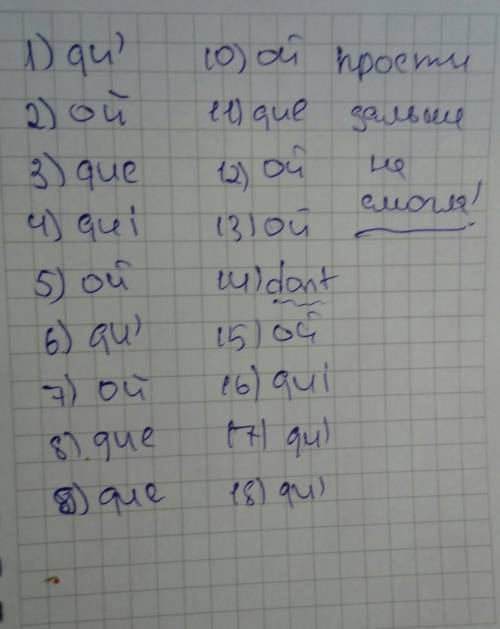 1) qui
2) ой
3) que
4) qui
5) ой
6) qui
7) ой
8) que
9) que
10) ой
11) que
12) ой
13) ой
14) dont
15) ой
16) qui
17) qui
18) qui
прости
дальше
не
смогла!